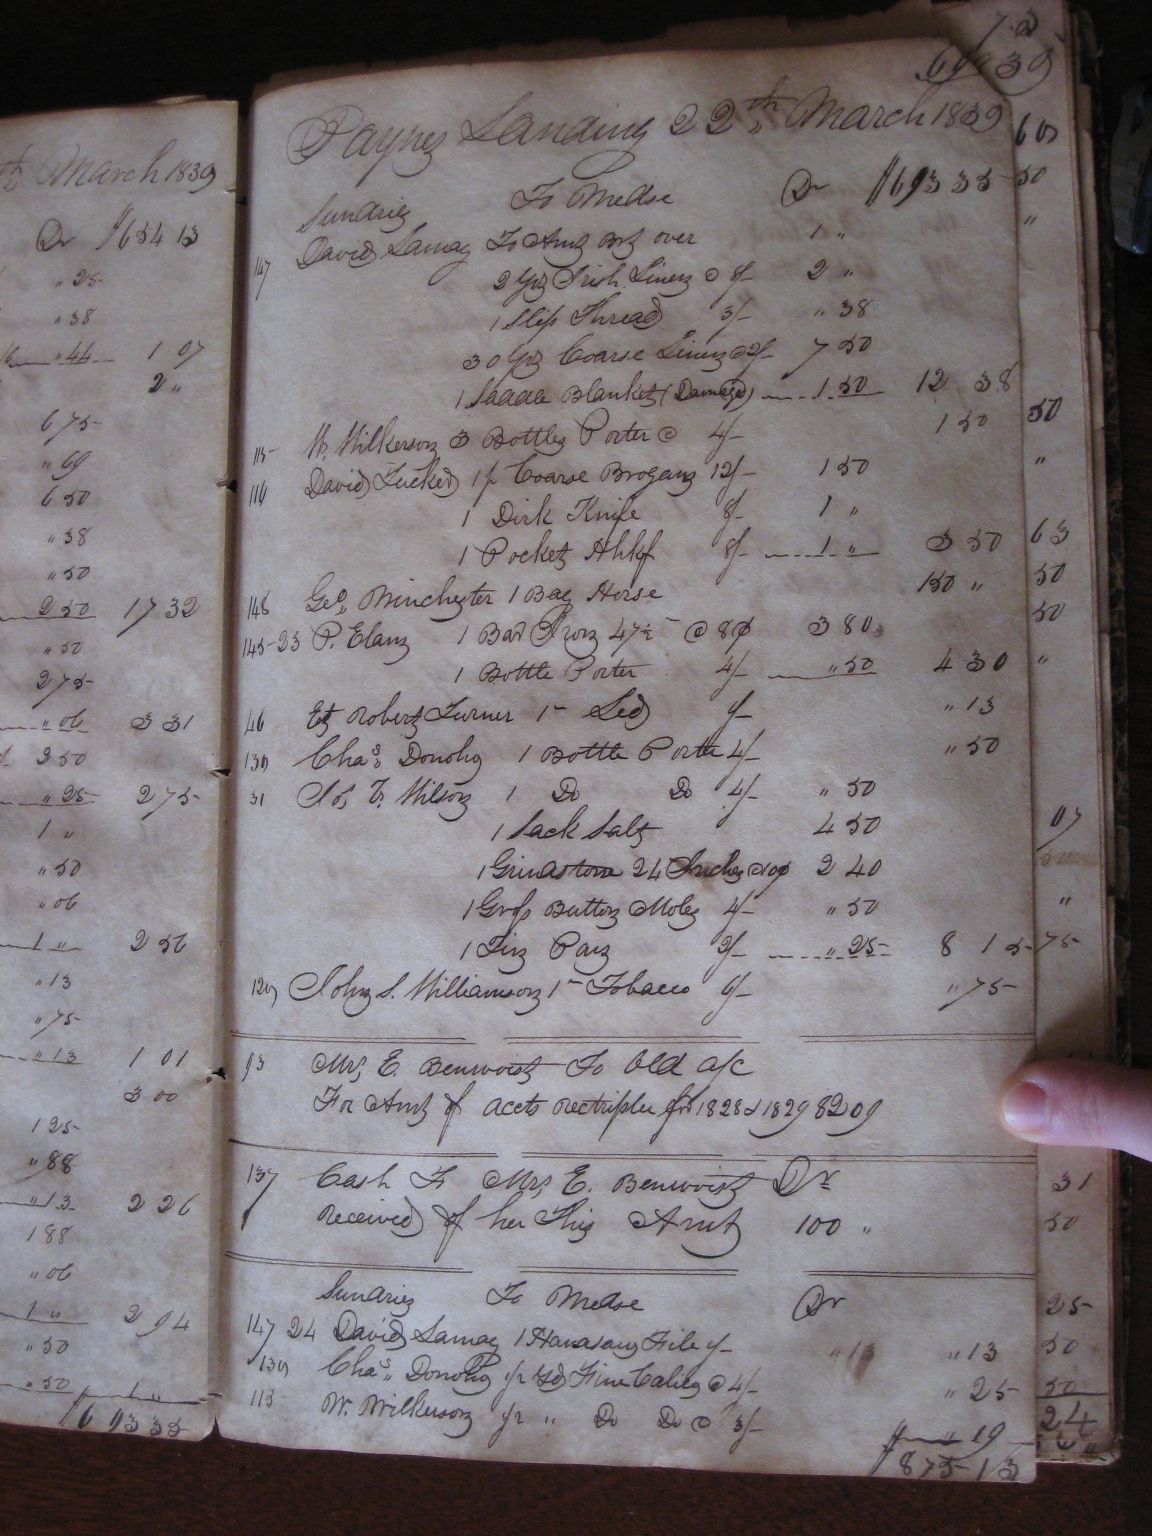 March 1839
Dr $654 13
" 25
" 38
" 44 1 07
2 "
6 75
" 69
6 50
" 38
" 50
2 50 17 32
" 50
2 75
" 06 3 31
2 50
" 25 2 75
1 "
" 50
" 06
1 " 2 56
" 13
" 75
" 13 1 01
3 00
1 25
" 88
" 13 2 26
1 88
" 06
1 " 2 94
" 50
" 50 1 "
$693 35
Paynes Landing 22th March 1839
Sundries To Medse Dr $693 35
147 David Lamay To Amt Brt over 1 "
2 Yds Irish Linen @ 8/- 2 "
1 Slip Thread 3/- " 38
30 Yds Coarse Linen @ 2/- 7 50
1 Saddle Blanket (Damagd) 1 50 12 38
115 W. Wilkerson 3 Bottles Porter @ 4/- 1 50
116 David Tucked 1 pr Coarse Brogans 12/- 1 50
1 Dirk Knife 8/- 1 "
1 Pocket Hhkf 8/- 1 " 3 50
148 Geo. Winchester 1 Bay Horse 150 "
145-23 P. Elam 1 Bar Iron 47½ @ 8¢ 3 80
1 Bottle Porter 4/- " 50 4 30
46 Robert Turner 1 - Led 1/- " 13
139 Chas. Donohy 1 Bottle Porter 4/- " 50
31 T. Wilson 1 Do Do 4/- " 50
1 Sack Salt 4 50
1 Grindstone 24 Inches @ 10¢ 2 40
1 Gross Button Moles 4/- " 50
1 Tin Pan 2/- " 25 8 15
129 John S. Williamson 1 - Tobacco 6/- " 75
93 Mrs E. Benwoist To Old a/c
For Amt of accts for 1828 & 1829 82 09
137 Cash To Mrs E. Benwoist Dr
Received of her This Amt 100 "
Sundries To Medse Dr
147 24 David Lamay 1 Handsaw File 1/- " 13
139 Chas. Donohy ½ Yd Fine Calico @ 4/- " 25
115 W. Wilkerson ½ " Do Do @ 3/- " 19
$875 13
69 39
50
"
50
"
63
50
50
"
07
"
75
31
50
25
50
50
24